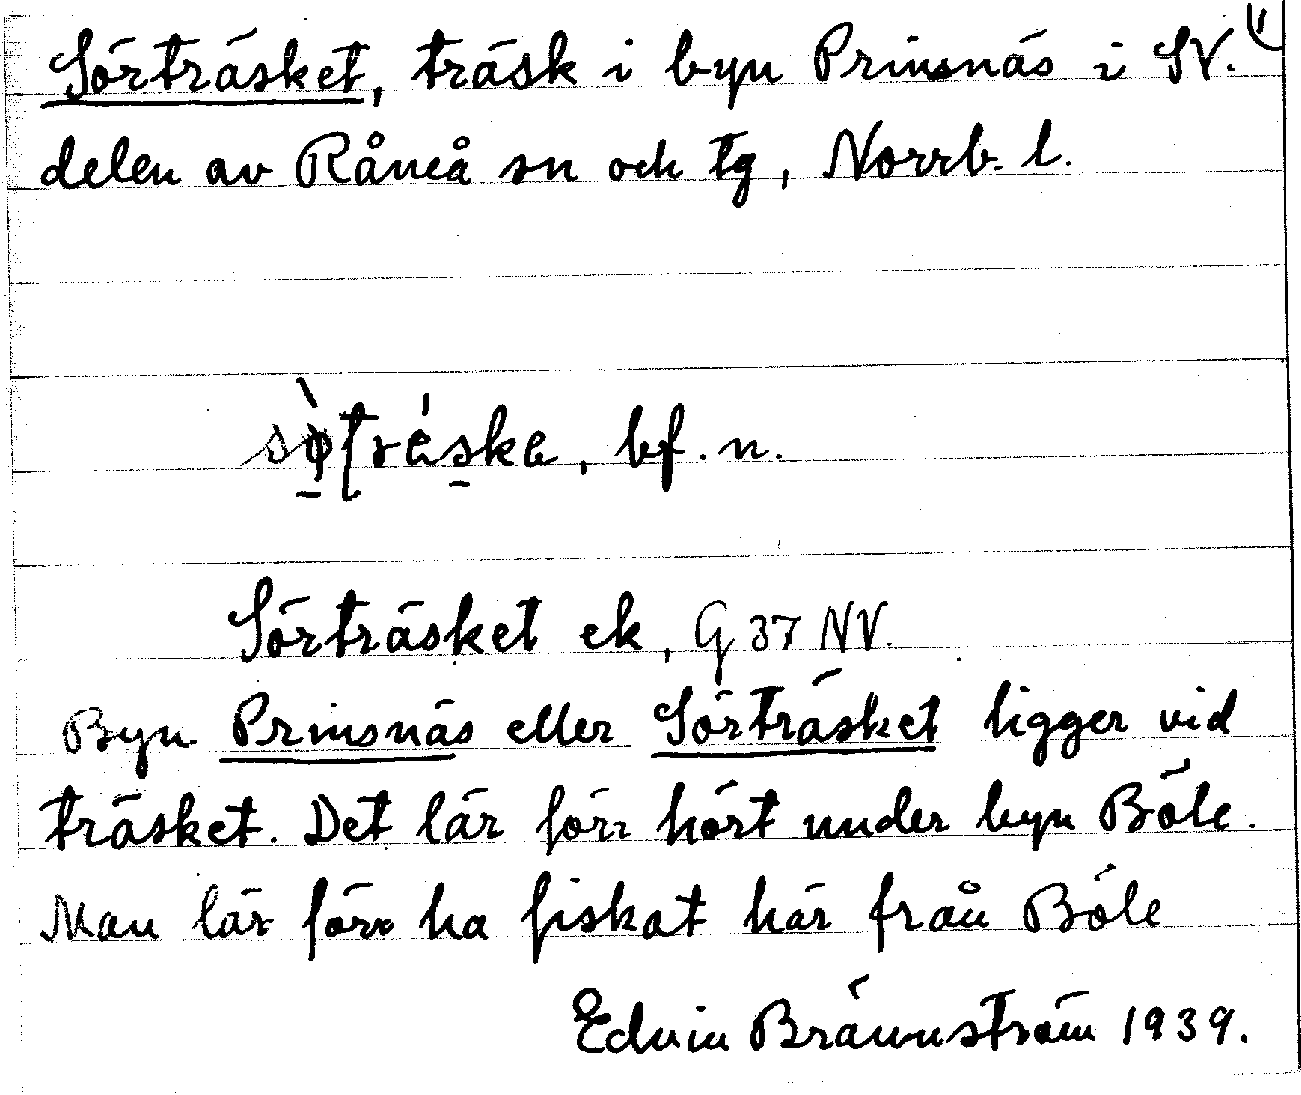 Sörträsket, träsk i byn Prinsnäs i SV.
delen av Råneå sn och tg, Norrb. l.
bf. n.
Sörträsket ek, G 37 NV.
Byn Prinsnäs eller Sörträsket ligger vid
träsket. Det lär förr hört under byn Böle.
Man lär förr ha fiskat här från Böle
Edvin Brännström 1939.